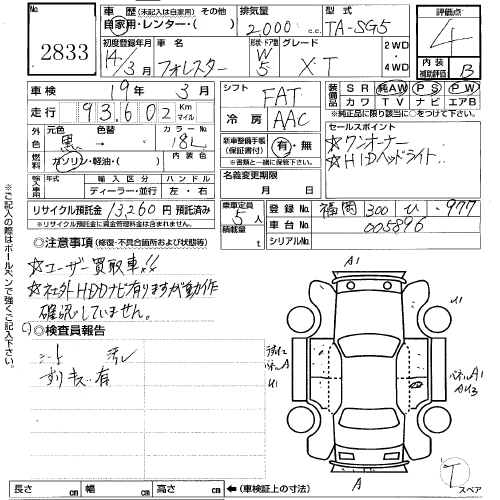 No. 2833
車歴 (未記入は自家用) その他
自家用・レンター・( )
排気量 2,000 c.c.
型式 TA-SG5
評価点 4
内装補助評価 B
初度登録年月 14/3月
車名 フォレスター
形状・ドア数 W 5
グレード XT
2WD・4WD
車検 19年 3月
シフト FAT
装備品 SR 純AW PS PW
カワ TV ナビ エアB
*純正品に限り該当に○をつけて下さい
走行 93,602 Km マイル
冷房 AAC
セールスポイント
☆ワンオーナー
☆HIDヘッドライト
外色 元色 黒 → 色替
カラーNo. 18L
内装色
燃料 ガソリン・軽油・( )
新車整備手帳(保証書付) 有・無
※書類と一緒に保管して下さい。
輸入車 年式 輸入区分 ハンドル
ディーラー・並行 左・右
名義変更期限 月 日
リサイクル預託金 13,260円 預託済み
※リサイクル預託金に資金管理料金は含まれません。
乗車定員 5人
積載量 t
登録No. 福岡 300 ひ 977
車台No. 005896
シリアルNo.
◎注意事項 (修復・不具合箇所および状態等)
☆ユーザー買取車!!
☆社外HDDナビ有りますが動作
確認していません。
◎検査員報告
シート 汚レ
すりキズ有
A1
U1
パネルA
U1
パネルA1
AU3
A
T
スペア
長さ cm 幅 cm 高さ cm ←(車検証上の寸法)
※ご記入の際はボールペンで強くご記入下さい。